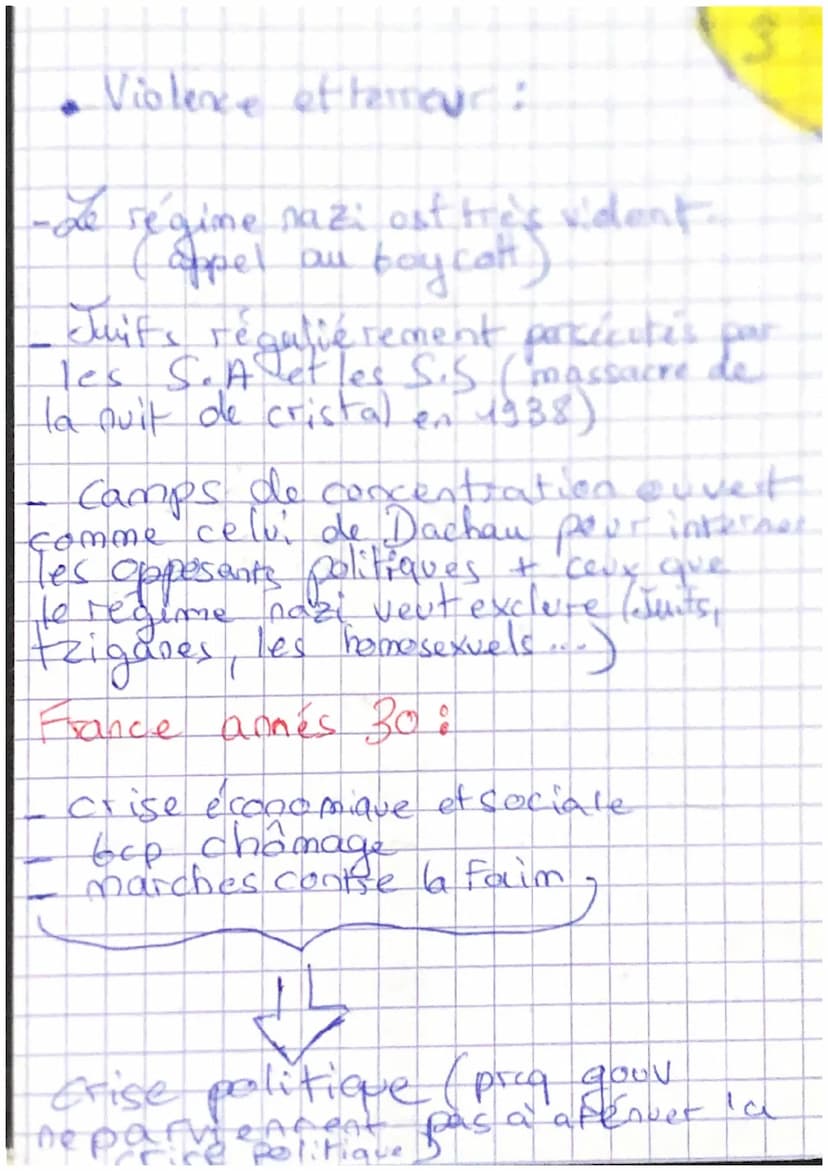 3
• Violence et terreur :
- Le régime nazi est très violent.
( appel au boycott )
- Juifs régulièrement persécutés par
les S.A et les S.S ( massacre de
la nuit de cristal en 1938)
- Camps de concentration ouvert
comme celui de Dachau pour interner
les opposants politiques + ceux que
le régime nazi veut exclure (Juifs,
tziganes, les homosexuels ...)
France annés 30 :
- crise économique et sociale
- bcp chômage
- marches contre la faim
crise politique ( prcq gouv
ne parviennent pas à aténuer la
crise politique )